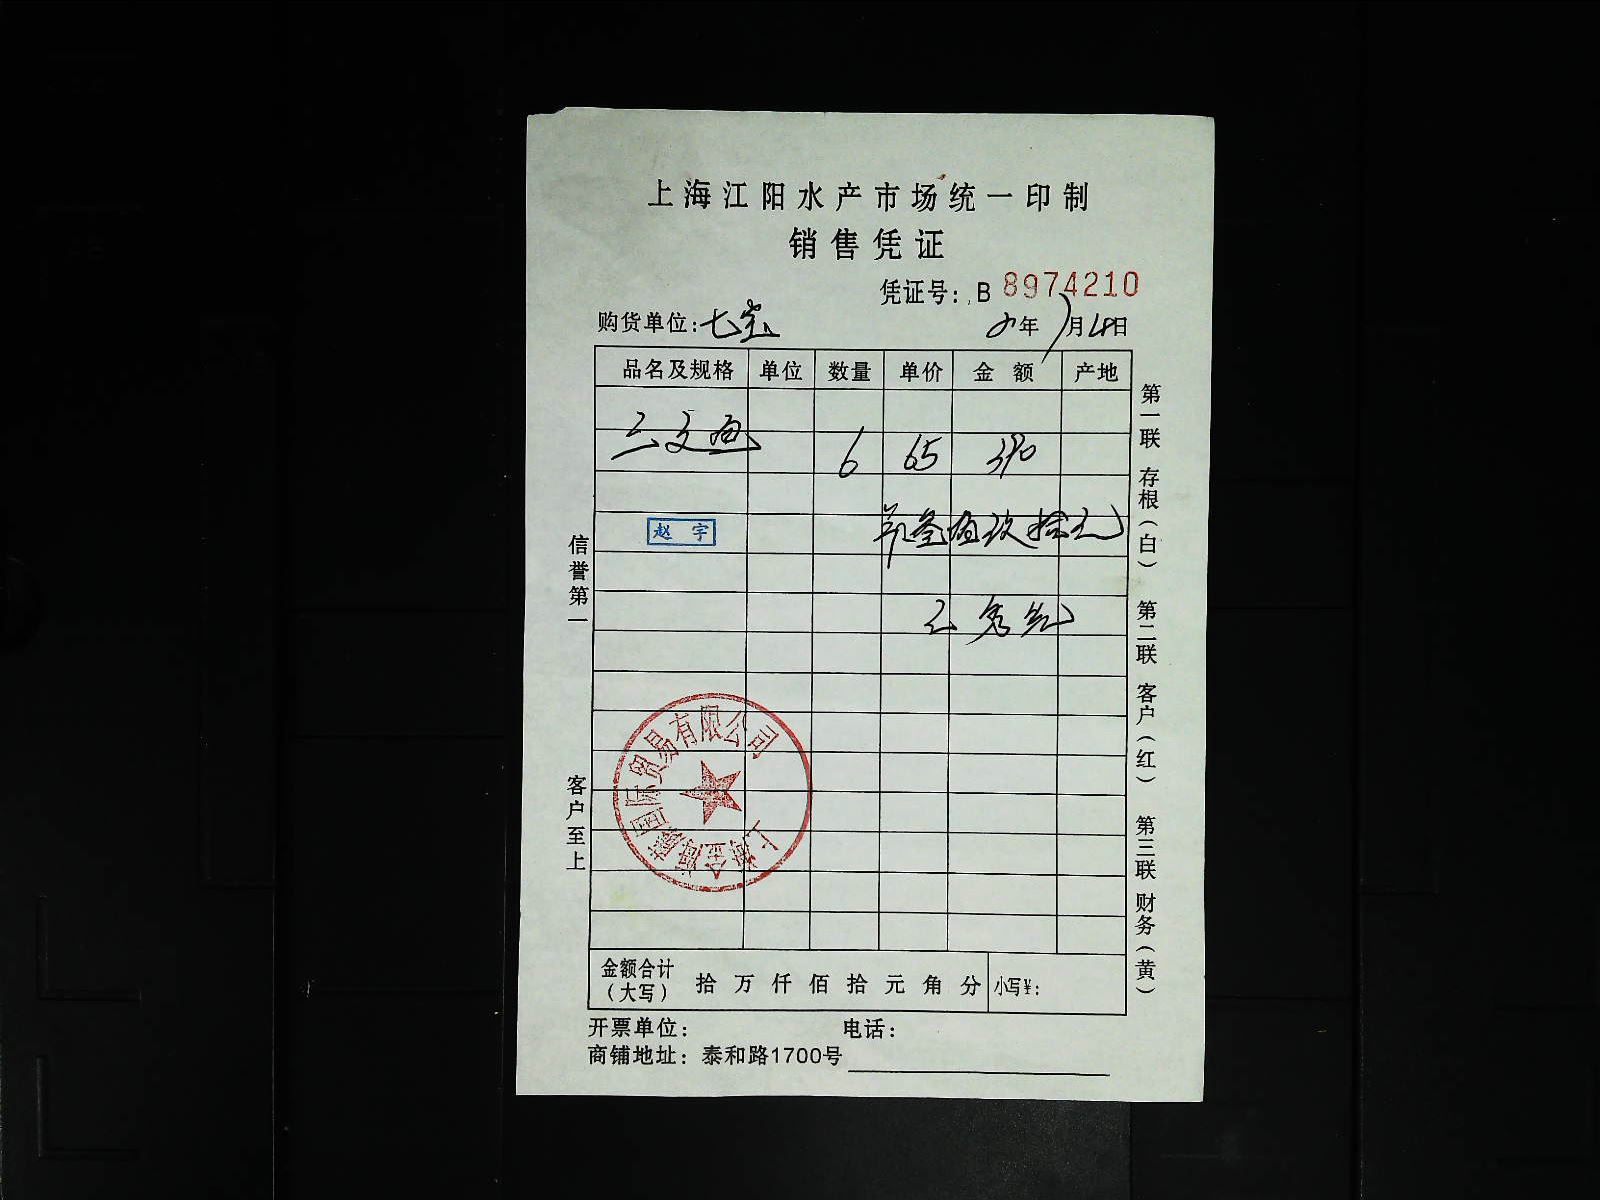 上海江阳水产市场统一印制
销售凭证
凭证号: B 8974210
购货单位: 七宝
年 月 日
品名及规格 单位 数量 单价 金额 产地
三文鱼 6 65 390
叁佰玖拾元
赵宇
信誉第一
客户至上
第一联 存根(白) 第二联 客户(红) 第三联 财务(黄)
上海金海豪国际贸易有限公司
金额合计(大写) 拾 万 仟 佰 拾 元 角 分 小写¥:
开票单位: 电话:
商铺地址: 泰和路1700号